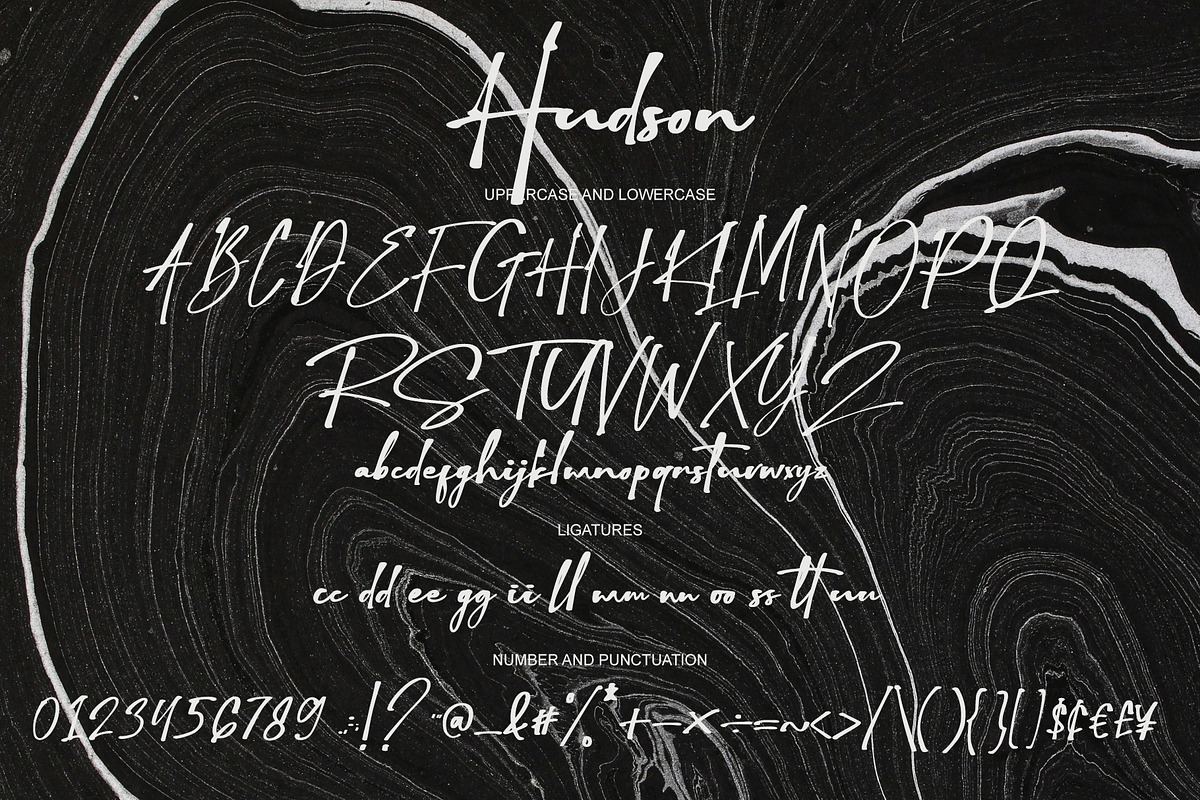 Hudson
UPPERCASE AND LOWERCASE
ABCDEFGHIJKLMNOPQ
RSTUVWXYZ
abcdefghijklmnopqrstuvwxyz
LIGATURES
cc dd ee gg ii ll mm nn oo ss tt uu
NUMBER AND PUNCTUATION
0123456789 .,:;!? "'@_&#%*+-×÷=~<>/\(){}[]$¢€£¥